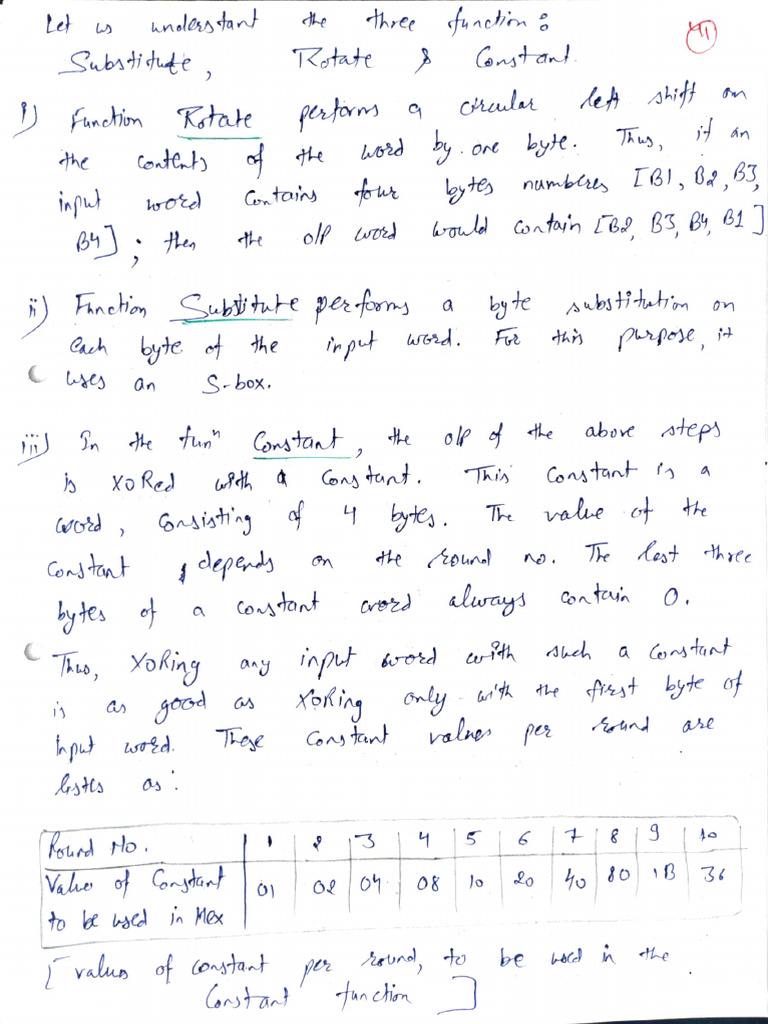 Let us understant the three function:
Substitute, Rotate & Constant.
i) Function Rotate performs a circular left shift on
the contents of the word by one byte. Thus, if an
input word contains four bytes numberes [B1, B2, B3,
B4]; then the o/p word would contain [B2, B3, B4, B1]
ii) Function Substitute performs a byte substitution on
each byte of the input word. For this purpose, it
uses an S-box.
iii) In the funⁿ Constant, the o/p of the above steps
is XORed with a constant. This constant is a
word, consisting of 4 bytes. The value of the
constant, depends on the round no. The last three
bytes of a constant word always contain 0.
Thus, XORing any input word with such a constant
is as good as XORing only with the first byte of
Input word. These constant values per round are
listes as:
Round No. 1 2 3 4 5 6 7 8 9 10
Value of Constant 01 02 04 08 10 20 40 80 1B 36
to be used in Hex
[values of constant per round, to be used in the
Constant function]